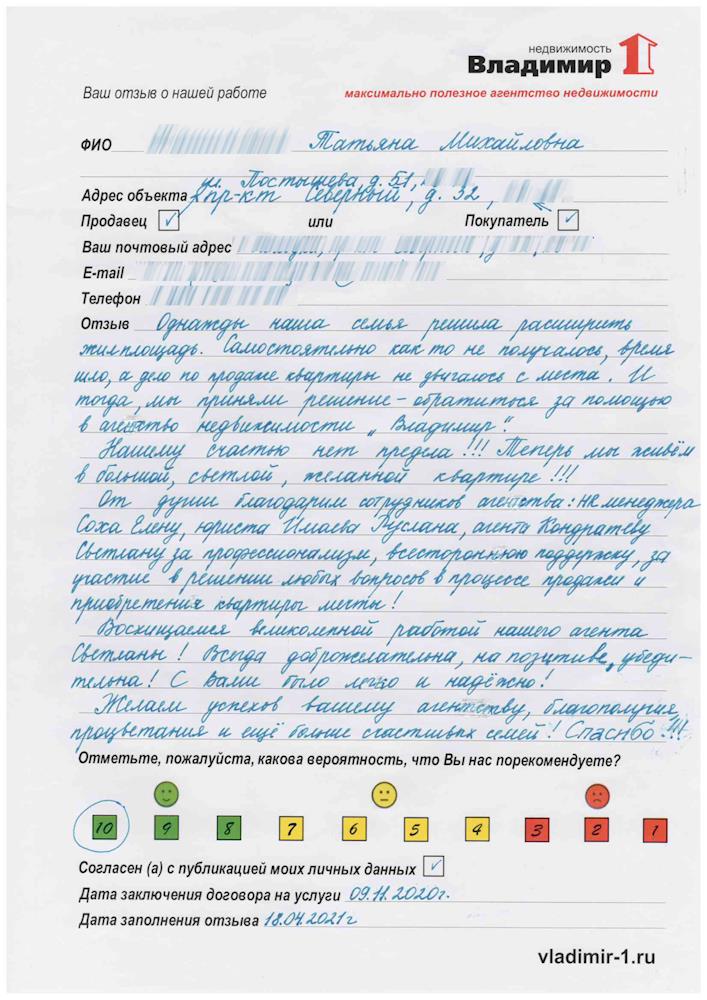 недвижимость
Владимир 1
Ваш отзыв о нашей работе
максимально полезное агентство недвижимости
ФИО Татьяна Михайловна
ул. Постышева, д. 51,
Адрес объекта пр-кт Северный, д. 32,
Продавец ✓ или Покупатель ✓
Ваш почтовый адрес
E-mail
Телефон
Отзыв Однажды наша семья решила расширить
жилплощадь. Самостоятельно как то не получалось, время
шло, а дело по продаже квартиры не двигалось с места. И
тогда, мы приняли решение - обратиться за помощью
в агенство недвижимости „Владимир".
Нашему счастью нет предела!!! Теперь мы живём
в большой, светлой, желанной квартире!!!
От души благодарим сотрудников агенства: HR менеджера
Соха Елену, юриста Имаева Руслана, агента Кондратеву
Светлану за профессионализм, всестороннюю поддержку, за
участие в решении любых вопросов в процессе продажи и
приобретения квартиры мечты!
Восхищаемся великолепной работой нашего агента
Светланы! Всегда доброжелательна, на позитиве, убеди-
тельна! С Вами было легко и надёжно!
Желаем успехов вашему агентству, благополучия,
процветания и ещё больше счастливых семей! Спасибо!!!
Отметьте, пожалуйста, какова вероятность, что Вы нас порекомендуете?
10 9 8 7 6 5 4 3 2 1
Согласен (а) с публикацией моих личных данных ✓
Дата заключения договора на услуги 09.11.2020г.
Дата заполнения отзыва 18.04.2021г
vladimir-1.ru